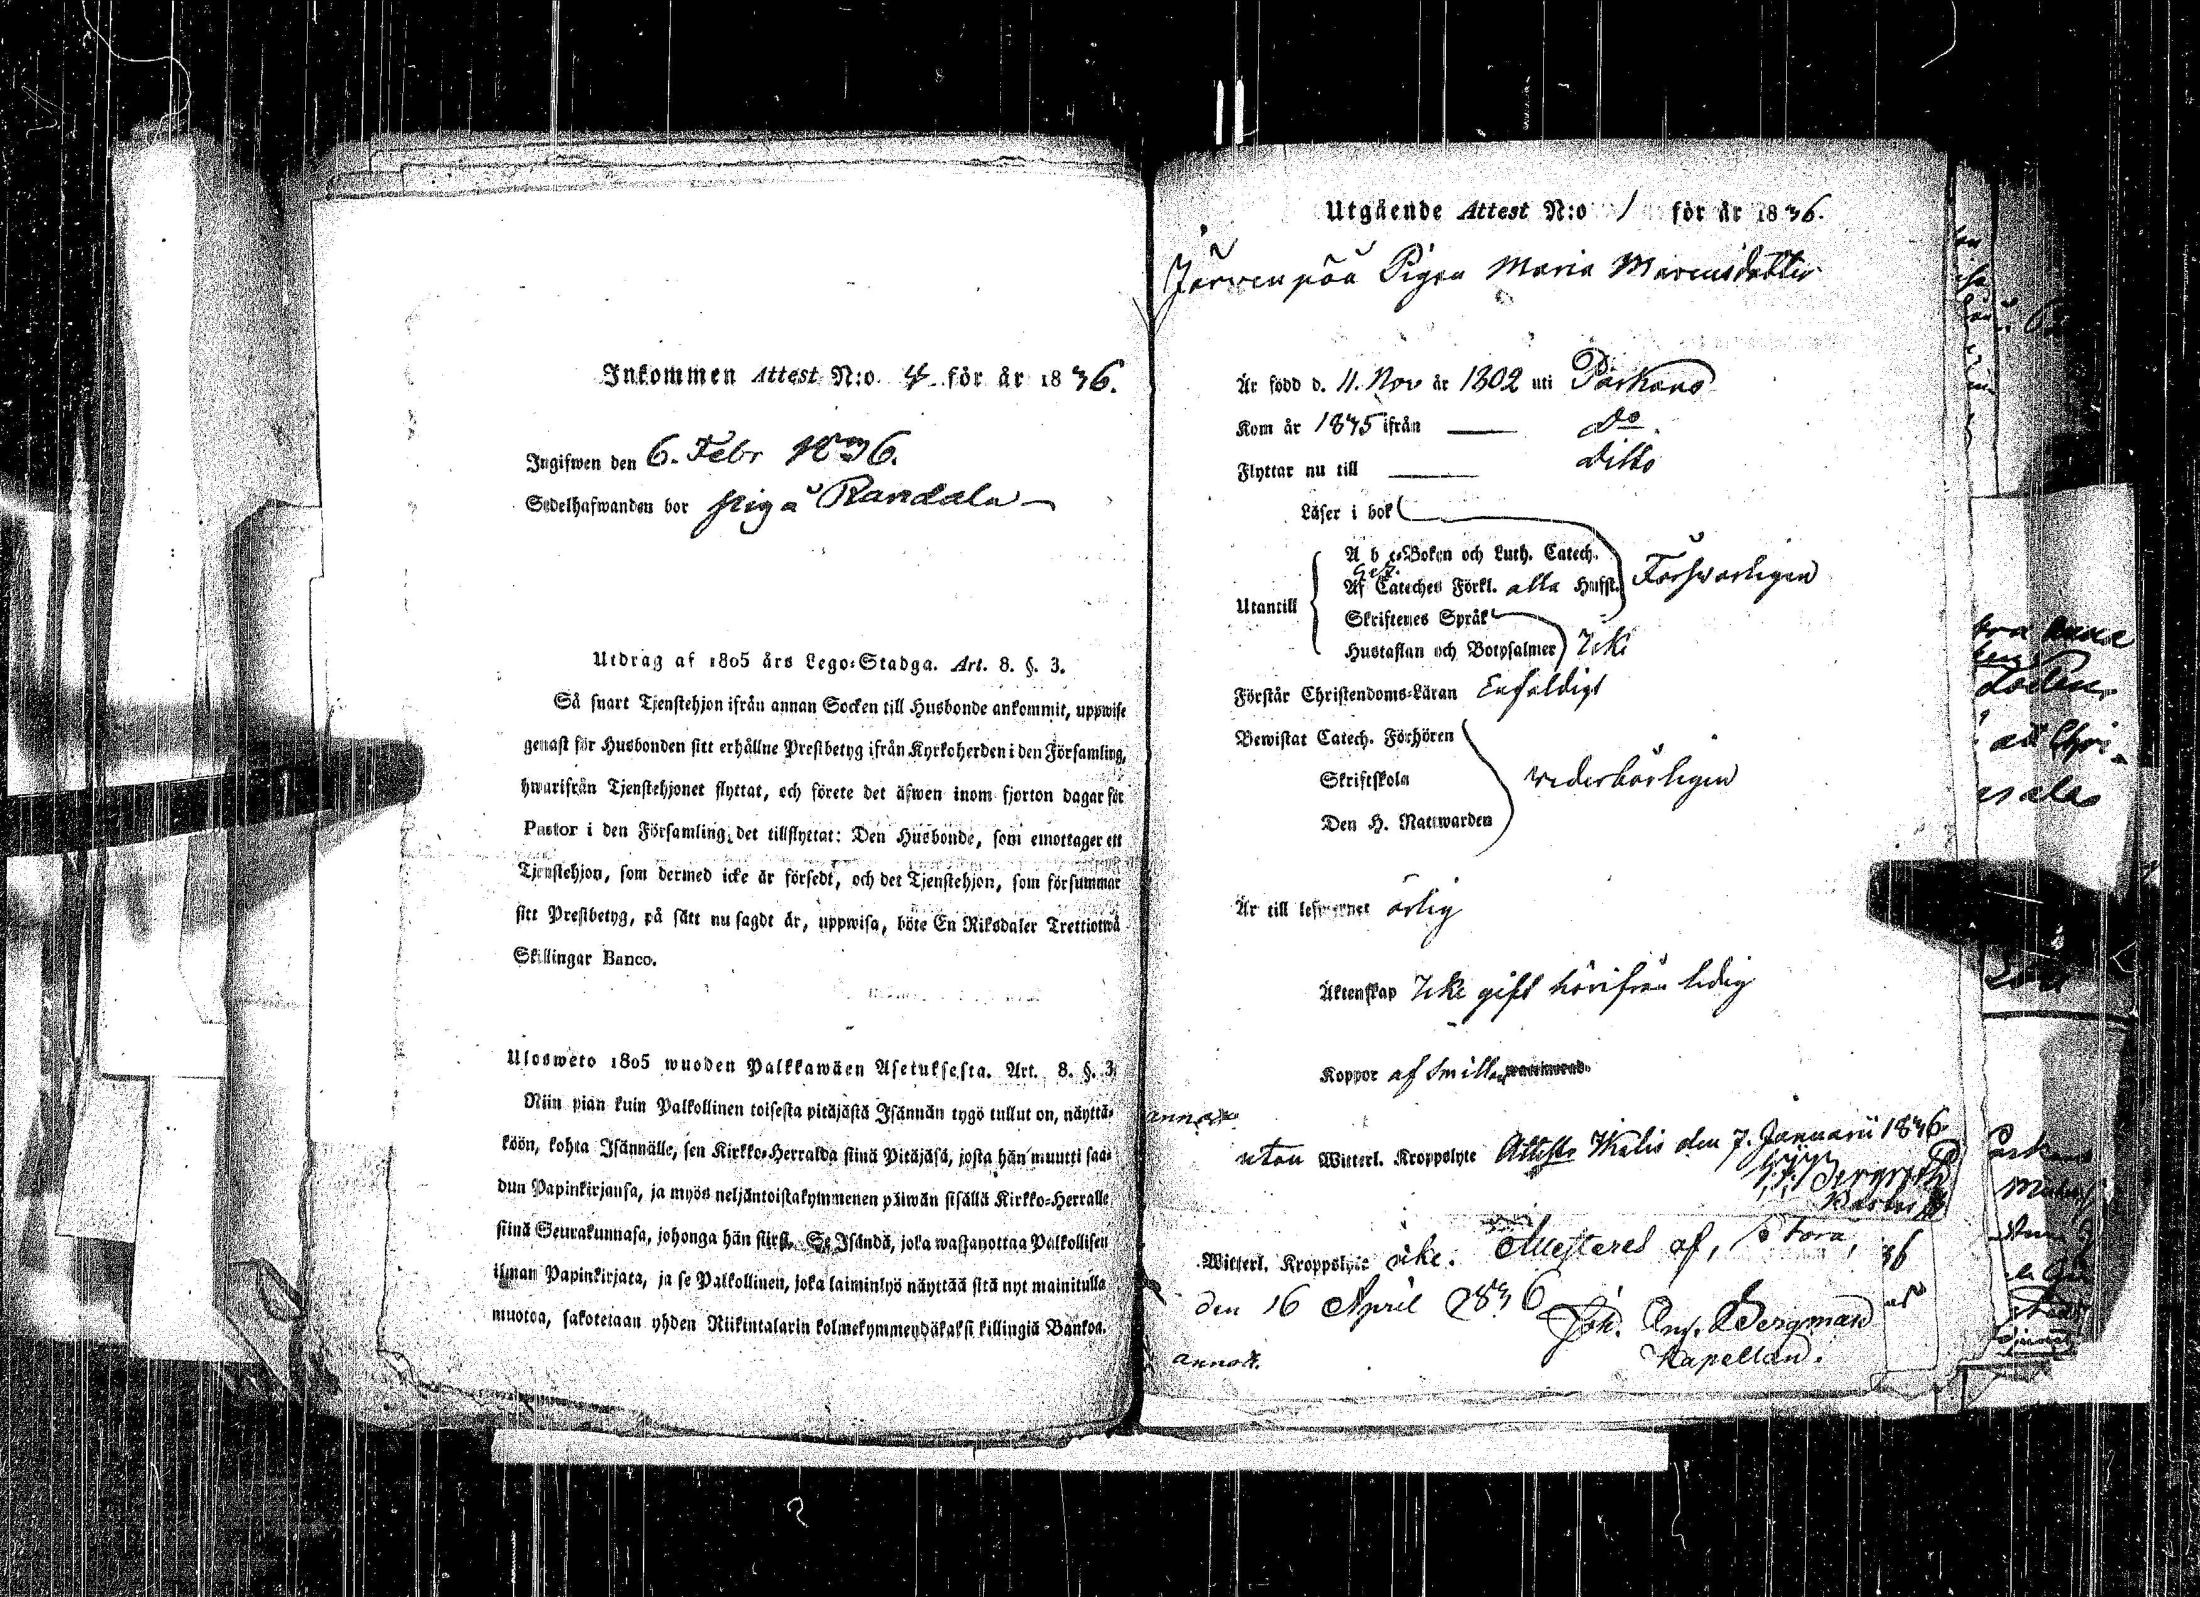 Inkommen Attest N:o 4 för år 1836.
Ingifwen den 6. Febr 1836.
Sedelhafwanden bor pig å Randala
Utdrag af 1805 års Lego-Stadga. Art. 8. §. 3.
Så snart Tjenstehjon ifrån annan Socken till Husbonde ankommit, uppwise
genast för Husbonden sitt erhållne Prestbetyg ifrån Kyrkoherden i den Församling,
hwarifrån Tjenstehjonet flyttat, och förete det äfwen inom fjorton dagar för
Pastor i den Församling, det tillflyttat: Den Husbonde, som emottager ett
Tjenstehjon, som dermed icke är försedt, och det Tjenstehjon, som försummar
sitt Prestbetyg, på sätt nu sagdt är, uppwisa, böte En Riksdaler Trettiotwå
Skillingar Banco.
Ulosweto 1805 wuoden Palkkawäen Asetuksesta. Art. 8. §. 3.
Niin pian kuin Palkollinen toisesta pitäjästä Isännän tygö tullut on, näyttä-
köön, kohta Isännälle, sen Kirkko-Herralda siinä Pitäjäsä, josta hän muutti saa-
dun Papinkirjansa, ja myös neljäntoistakymmenen päiwän sisällä Kirkko-Herralle
siinä Seurakunnasa, johonga hän siirsi. Se Isändä, joka wastanottaa Palkollisen
ilman Papinkirjata, ja se Palkollinen, joka laiminlyö näyttää sitä nyt mainitulla
muotoa, sakotetaan yhden Riikintalarin kolmekymmendäkaksi killingiä Bankoa.
Utgående Attest N:o 1 för år 1836.
Järvenpää Pigan Maria Marcusdotter
Är född d. 11. Nov år 1802 uti Parkano
Kom år 1835 ifrån do
Flyttar nu till Ditto
Läser i bok
A b c-Boken och Luth. Catech.
Af Cateches Förkl. alla Hufst. Försvarligen
Utantill
Skriftenes Språk
Hustaflan och Botpsalmer Icke
Förstår Christendoms-Läran Enfaldigt
Bewistat Catech. Förhören
Skriftskola vederbörligen
Den H. Nattwarden
Är till lefwernet ärlig
Äktenskap Icke gift härifrån ledig
Koppor af smittan
utan Witterl. Kroppslyte Attest. Ikalis den 7. Januarii 1836.
Witterl. Kroppslyte icke.
den 16 April 1836 Joh. Bergman
Kapellan.